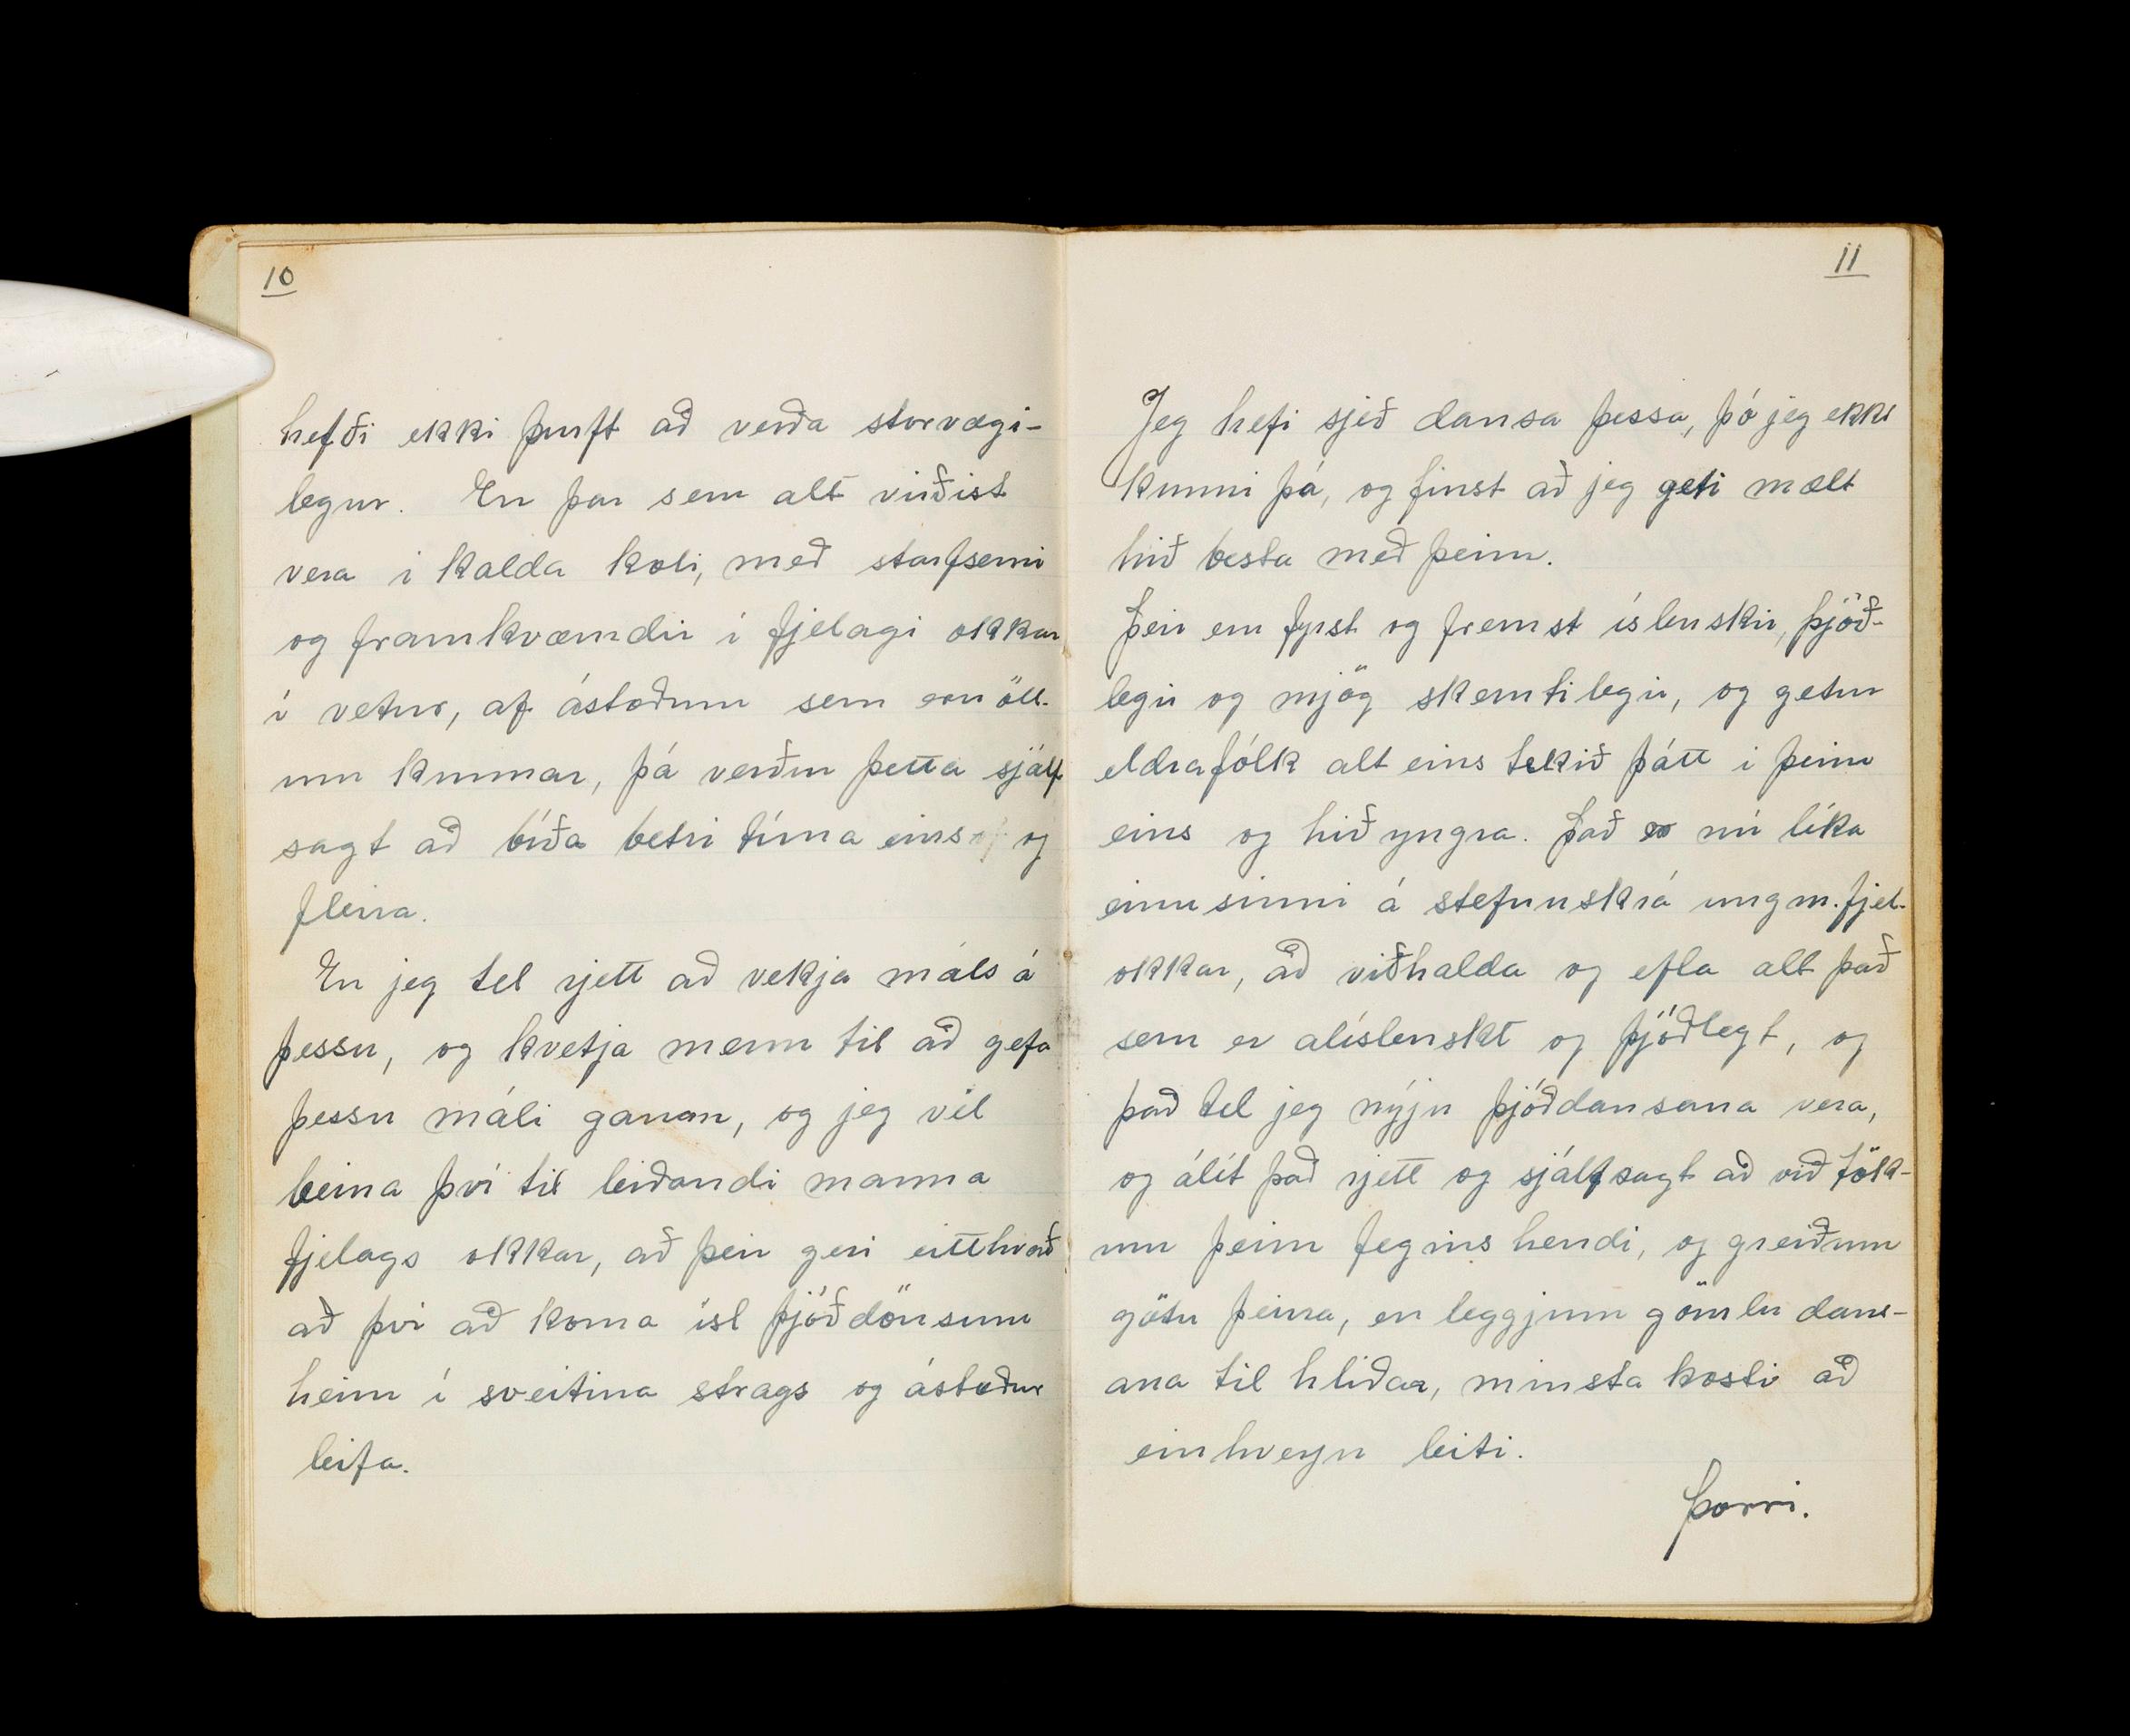 10
hefði ekki þurft að verða stórvægi-
legur. En þar sem alt virðist
vera í kalda koli, með starfsemi
og framkvæmdir í fjelagi okkar
í vetur, af ástæðum sem eru öll-
um kunnar, þá verður þetta sjálf
sagt að bíða betri tíma eins og
fleira.
En jeg tel rjett að vekja máls á
þessu, og hvetja menn til að gefa
þessu máli gaum, og jeg vil
beina því til leiðandi manna
fjelags okkar, að þeir geri eitthvað
að því að koma ísl þjóðdönsum
heim í sveitina strags og ástæður
leifa.
11
Jeg hefi sjeð dansa þessa, þó jeg ekki
kunni þá, og finst að jeg geti mælt
hið besta með þeim.
Þeir eru fyrst og fremst íslenskir, þjóð-
legir og mjög skemtilegir, og getur
eldrafólk alt eins tekið þátt í þeim
eins og hið yngra. Það er nú líka
einusinni á stefnuskrá ungm.fjel.
okkar, að viðhalda og efla alt það
sem er alíslenskt og þjóðlegt, og
það tel jeg nýju þjóðdansana vera,
og álít það rjett og sjálfsagt að við tök-
um þeim fegins hendi, og greiðum
götu þeirra, en leggjum gömlu dans-
ana til hliðar, minsta kosti að
einhverju leiti.
Þorri.